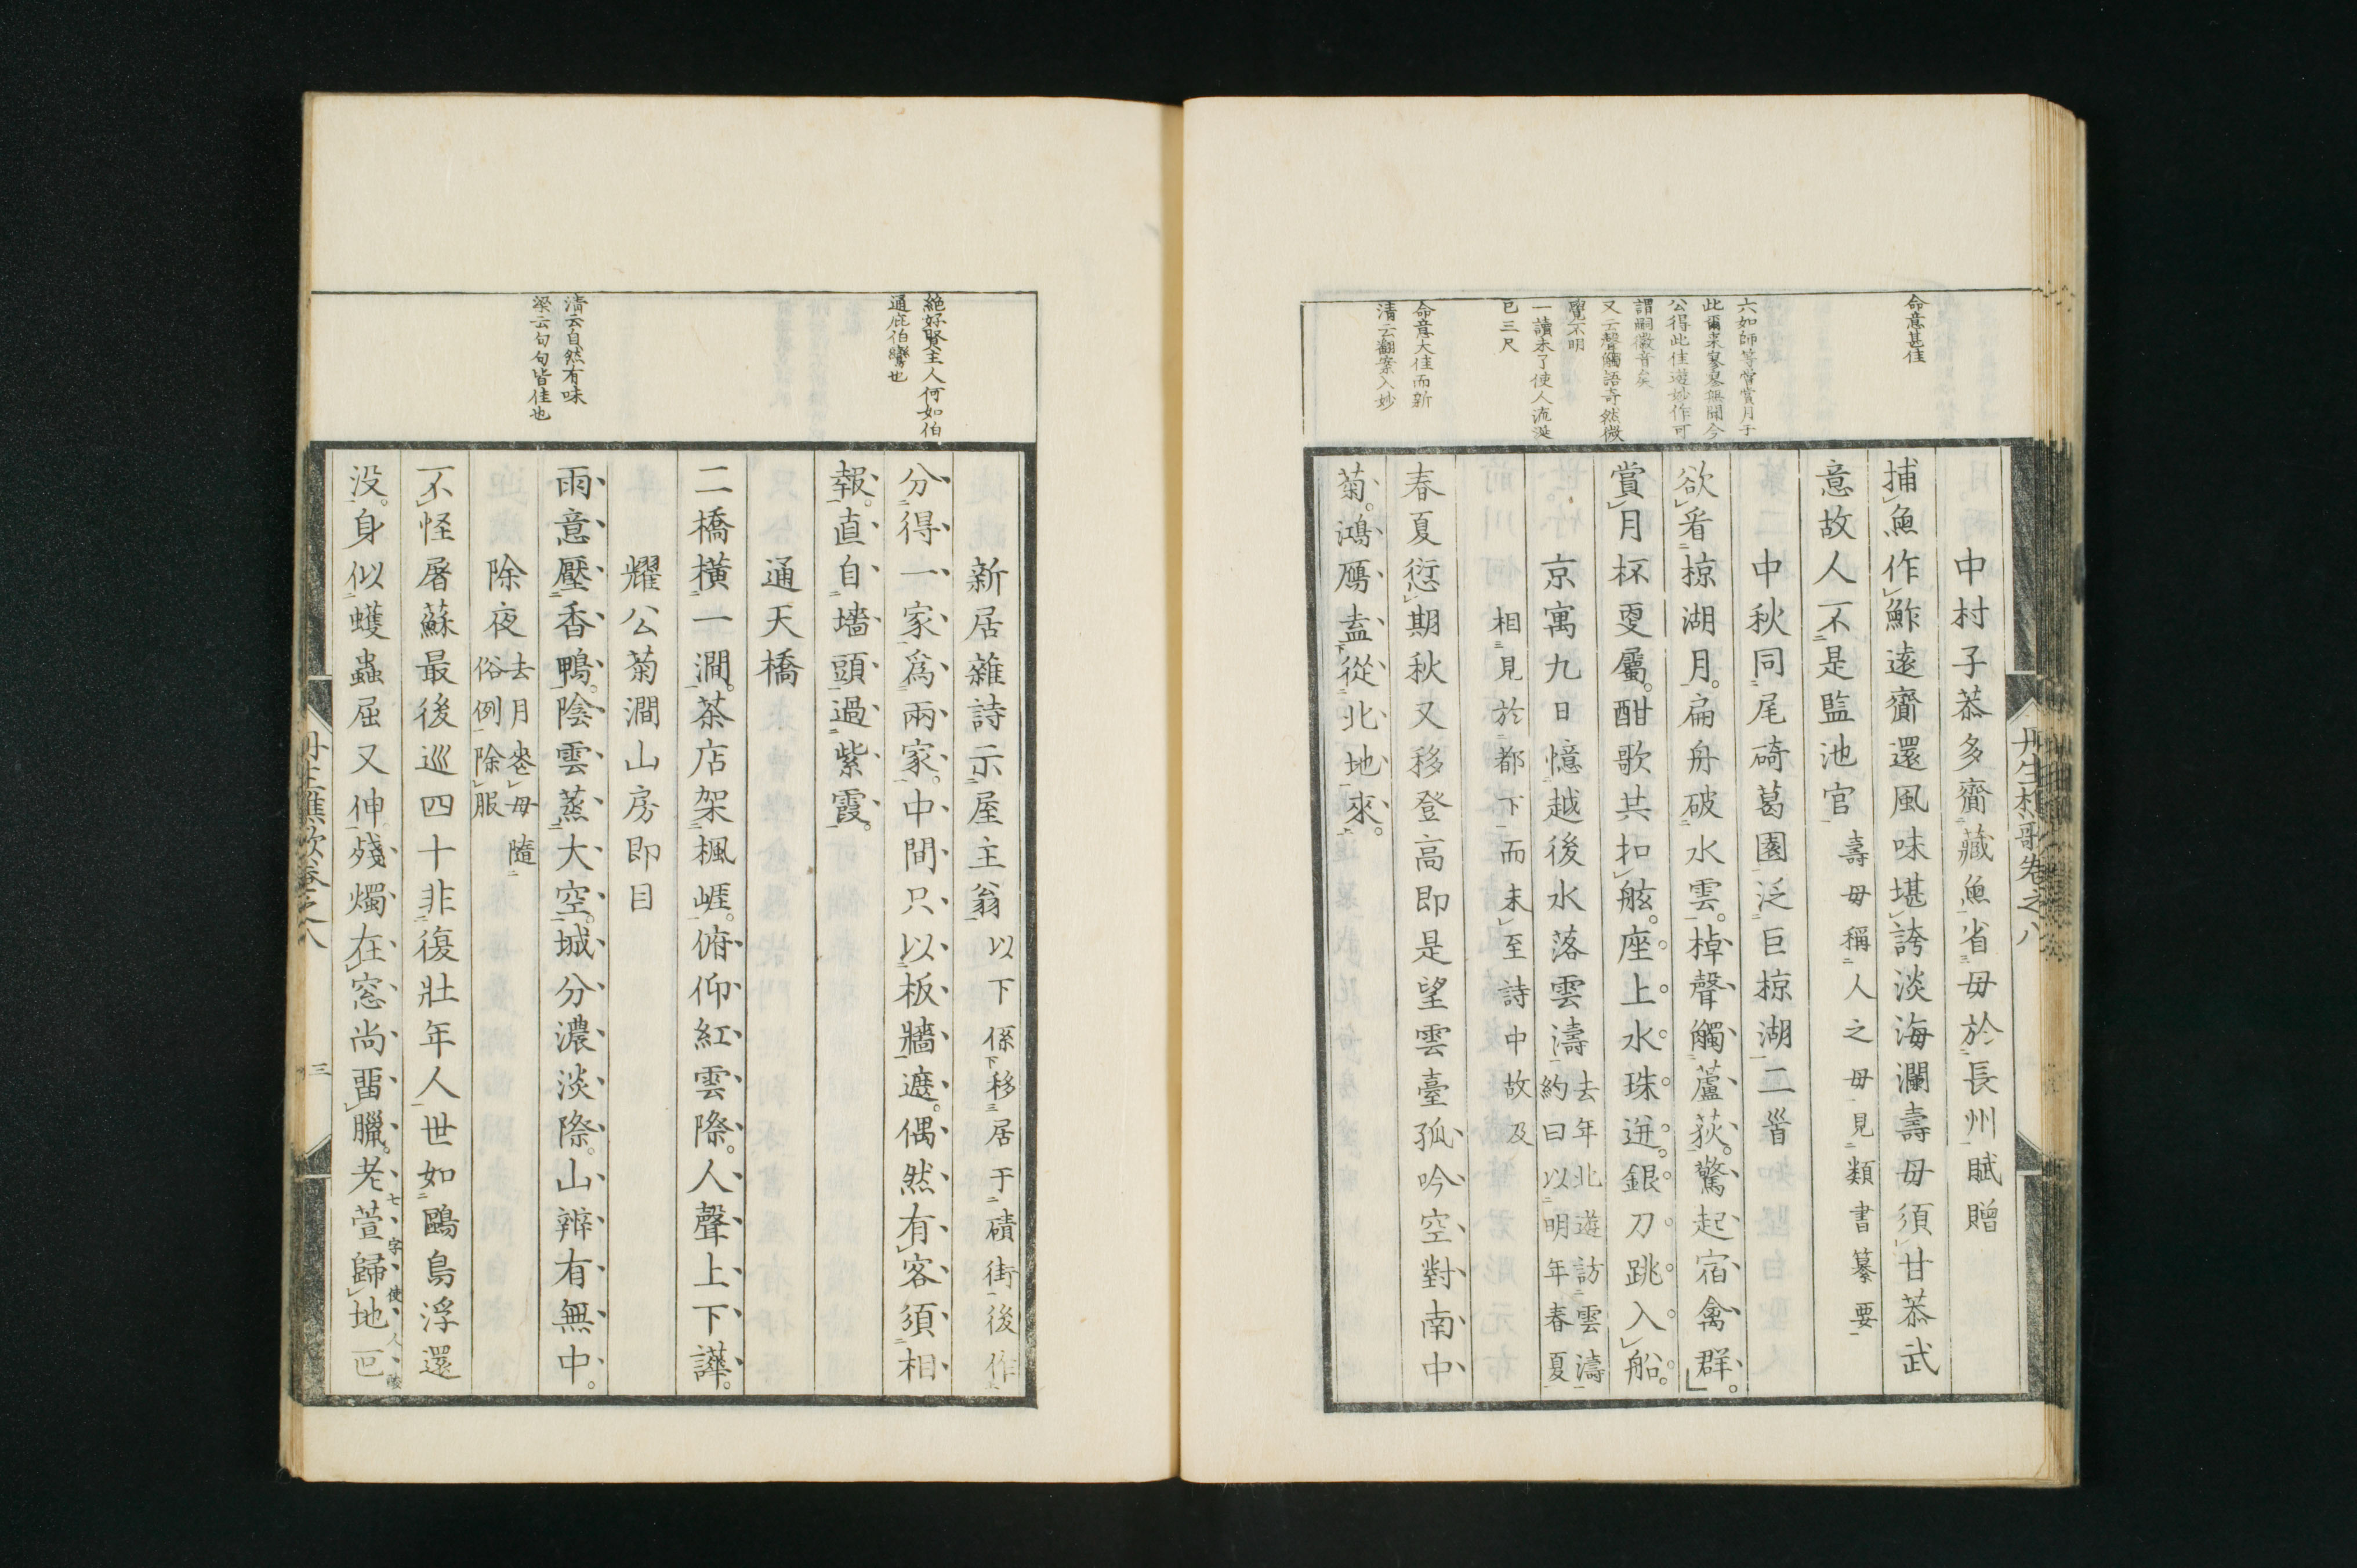 命意甚佳
六如師等嘗賞月于
此爾来寥寥無聞今
公得此佳遊妙作可
謂嗣徽音矣
又云聲觸語奇然微
覺不明
一讀未了使人流涎
已三尺
命意大佳而新
清云翻案入妙
丹生樵歌卷之八
中村子恭多齎藏魚省毋於長州賦贈
捕魚作鮓遠齎還風味堪誇淡海瀾壽毋須甘恭武
意故人不是監池官 壽毋稱人之毋見類書纂要
中秋同尾碕葛園泛巨椋湖二首
欲看椋湖月。扁舟破水雲。棹聲觸蘆荻。驚起宿禽群。
賞月杯更屬。酣歌共扣舷。座上水珠迸。銀刀跳入船。
京寓九日憶越後水落雲濤 去年北遊訪雲濤
約曰以明年春夏
相見於都下而未至詩中故及
春夏愆期秋又移登高即是望雲臺孤吟空對南中
菊。鴻鴈盍從北地來。
絶好賢主人何如伯
通庇伯鸞也
清云自然有味
梁云句句皆佳也
新居雜詩示屋主翁 以下係移居于磧街後作
分得一家爲兩家。中間只以板牆遮。偶然有客須相
報。直自墻頭過紫霞。
通天橋
二橋横一澗。茶店架楓崕。俯仰紅雲際。人聲上下譁。
耀公菊澗山房即目
雨意壓香鴨。陰雲蒸大空。城分濃淡際。山辨有無中。
除夜 去月喪毋隨
俗例除服
不怪屠蘇最後巡四十非復壯年人世如鷗鳥浮還
没。身似蠖蟲屈又伸殘燭在窓尚畱臘。老萱歸地已
七字使人
丹生樵歌卷之八
三